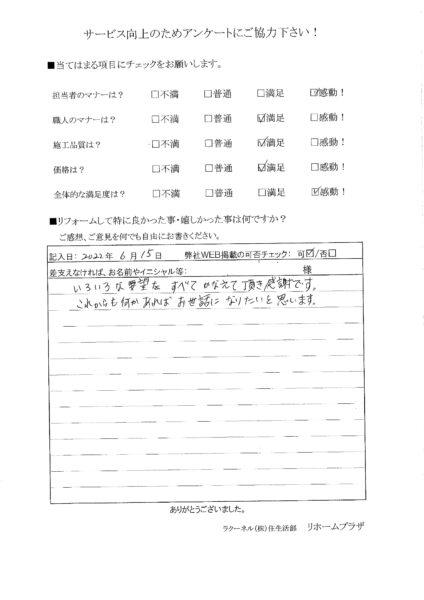 サービス向上のためアンケートにご協力下さい！
■当てはまる項目にチェックをお願いします。
担当者のマナーは？ □不満 □普通 □満足 ☑感動！
職人のマナーは？ □不満 □普通 ☑満足 □感動！
施工品質は？ □不満 □普通 ☑満足 □感動！
価格は？ □不満 □普通 ☑満足 □感動！
全体的な満足度は？ □不満 □普通 □満足 ☑感動！
■リフォームして特に良かった事・嬉しかった事は何ですか？
ご感想、ご意見を何でも自由にお書きください。
記入日：2022年 6月 15日 弊社WEB掲載の可否チェック：可☑/否□
差支えなければ、お名前やイニシャル等： 様
いろいろな希望を すべて かなえて頂き感謝です。
これからも何かあれば お世話に なりたいと思います。
ありがとうございました。
ラクーネル（株）住生活部 リホームプラザ